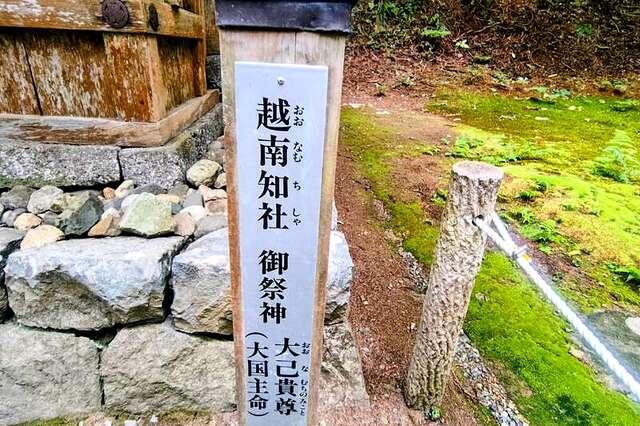 越南知社 御祭神
おお なむ ち しゃ
大己貴尊
おお な むちのみこと
(大国主命)